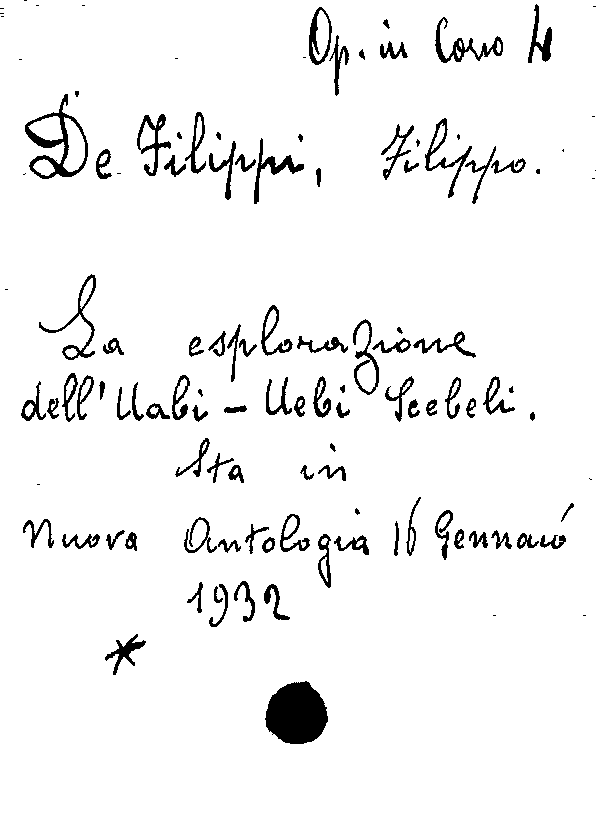 Op. in Corso 4
De Filippi, Filippo.
La esplorazione
dell'Uabi - Uebi Scebeli.
Sta in
Nuova Antologia 16 Gennaio
1932
*